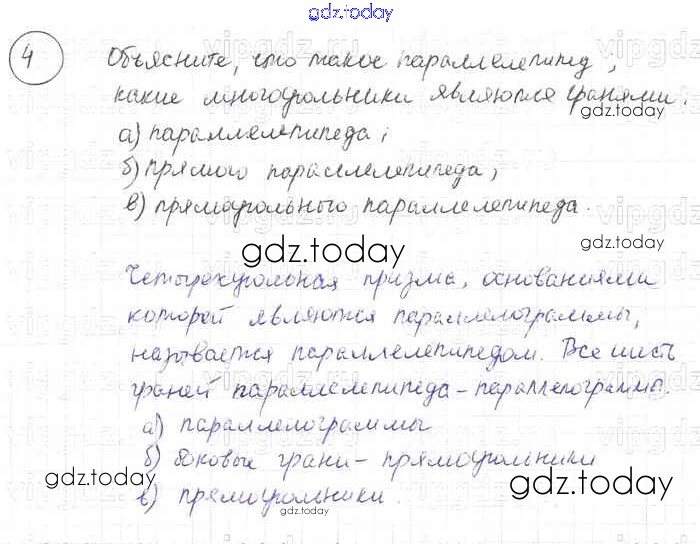 gdz.today
4 Объясните, что такое параллелепипед,
какие многоугольники являются гранями:
а) параллелепипеда;
б) прямого параллелепипеда;
в) прямоугольного параллелепипеда.
gdz.today
gdz.today
gdz.today
Четырехугольная призма, основаниями
которой являются параллелограммы,
называется параллелепипедом. Все шесть
граней параллелепипеда - параллелограммы.
а) параллелограммы
б) боковые грани - прямоугольники
в) прямоугольники.
gdz.today
gdz.today
gdz.today